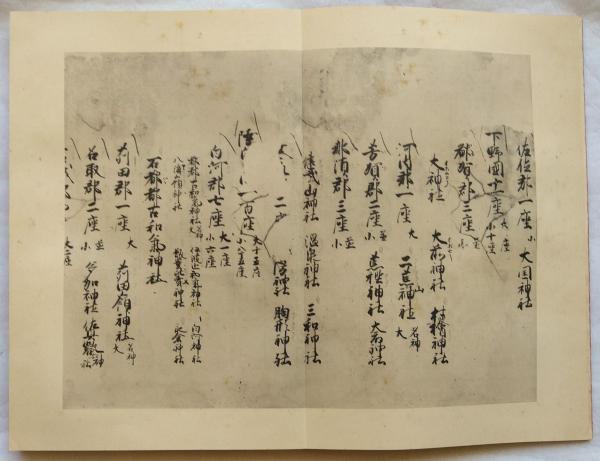 佐位郡一座小 大国神社
下野國十一座 大一座 小十座
都賀郡三座 並小
大神社 大前神社 村檜神社
河内郡一座 大 二荒山神社 名神大
芳賀郡二座 並小 荒樫神社 大前神社
那須郡三座 並小
健武山神社 温泉神社 三和神社
二 神社 胸形神社
一百座 大十五座 小八十五座
白河郡七座 大一座 小六座
都都古和氣神社 名神大 伊波止和氣神社 白河神社
八溝嶺神社 飯豊比賣神社 永倉神社
石都都古和氣神社
苅田郡一座 大 苅田嶺神社 名神大
名取郡二座 並小 多加神社 佐具叡神社